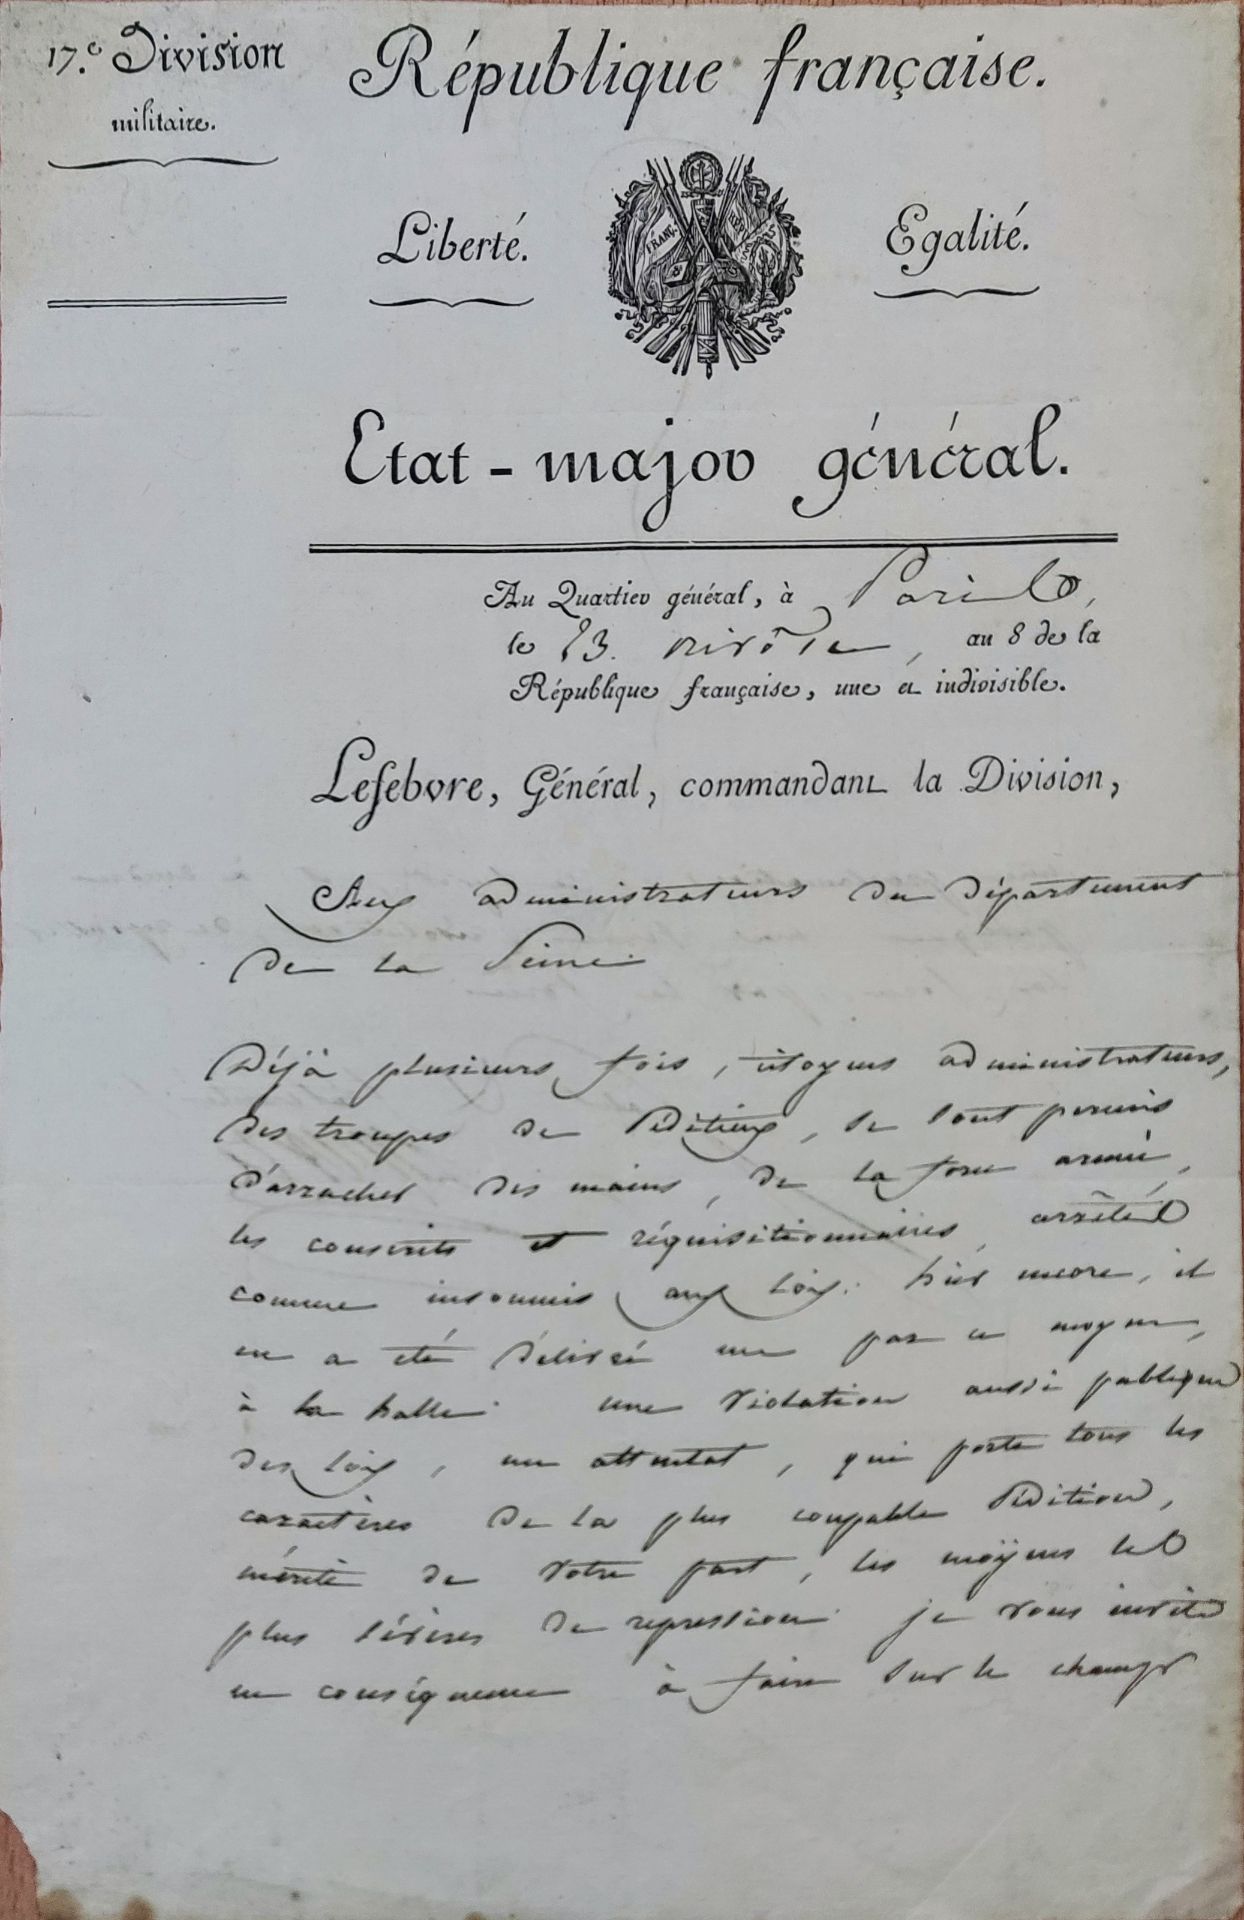 17.e Division
militaire.
République française.
Liberté.
FRANÇ.
Egalité.
Etat-major général.
Au Quartier général, à Paris,
le 23. nivôse, an 8 de la
République française, une et indivisible.
Lefebvre, Général, commandant la Division,
Aux administrateurs du Département
de la Seine.
Déjà plusieurs fois, citoyens administrateurs,
des troupes de séditieux, se sont permis
d'arracher des mains, de la force armée,
les conscrits et réquisitionnaires, arrêtés
comme insoumis aux loix. hier encore, il
en a été délivré un par ce moyen,
à la halle. une violation aussi publique
des loix, un attentat, qui porte tous les
caractères de la plus coupable sédition,
mérite de votre part, les moÿens les
plus sévères de repression. je vous invite
en conséquence à faire sur le champ